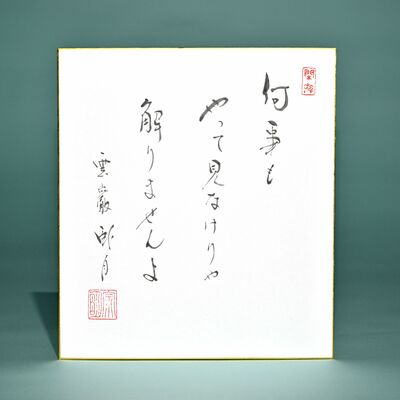 何事も
やって見なけりゃ
解りませんよ
雲巌